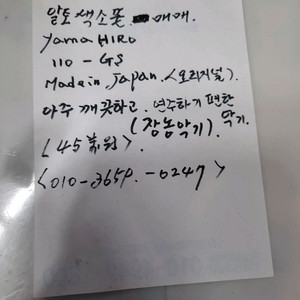 알토색소폰. 매매.
Yama HIRO
110 - GS
Made in Japan. <오리지널>.
아주 깨끗하고. 연주하기 편한 악기.
(장농악기).
<45萬원>.
<010-3659.-0247>